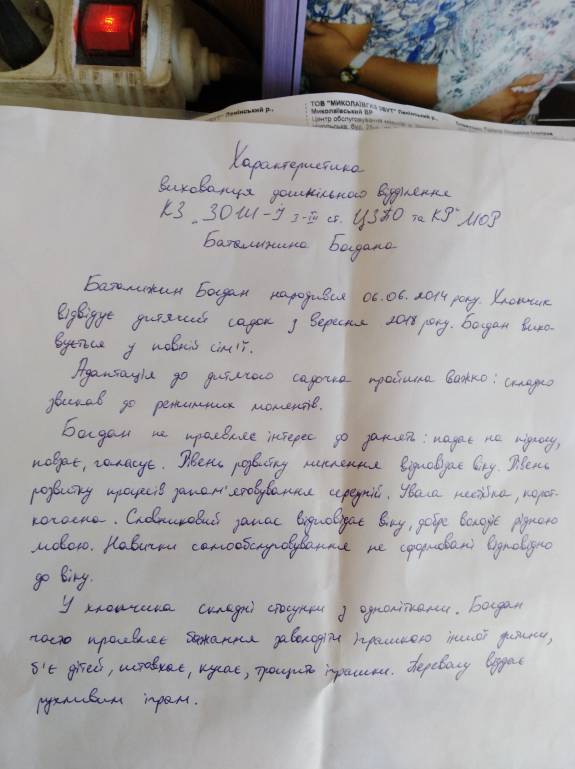 ТОВ "МИКОЛАЇВГАЗ ЗБУТ" Ленінський р.,
Миколаївський ВР
Ленінський р.,
Характеристика
вихованця дошкільного відділення
КЗ „ЗОШ-І І-ІІІ ст. ЦЗПО та КР" МОР
Баталижина Богдана
Баталижин Богдан народився 06.06.2014 року. Хлопчик
відвідує дитячий садок з вересня 2018 року. Богдан вихо-
вується у повній сім'ї.
Адаптація до дитячого садочка пройшла важко: складно
звикав до режимних моментів.
Богдан не проявляє інтерес до занять: падає на підлогу,
повзає, галасує. Рівень розвитку мислення відповідає віку. Рівень
розвитку процесів запам'ятовування середній. Увага нестійка, корот-
кочасна. Словниковий запас відповідає віку, добре володіє рідною
мовою. Навички самообслуговування не сформовані відповідно
до віку.
У хлопчика складні стосунки з однолітками. Богдан
часто проявляє бажання заволодіти іграшкою іншої дитини,
б'є дітей, штовхає, кусає, трощить іграшки. Перевагу віддає
рухливим іграм.